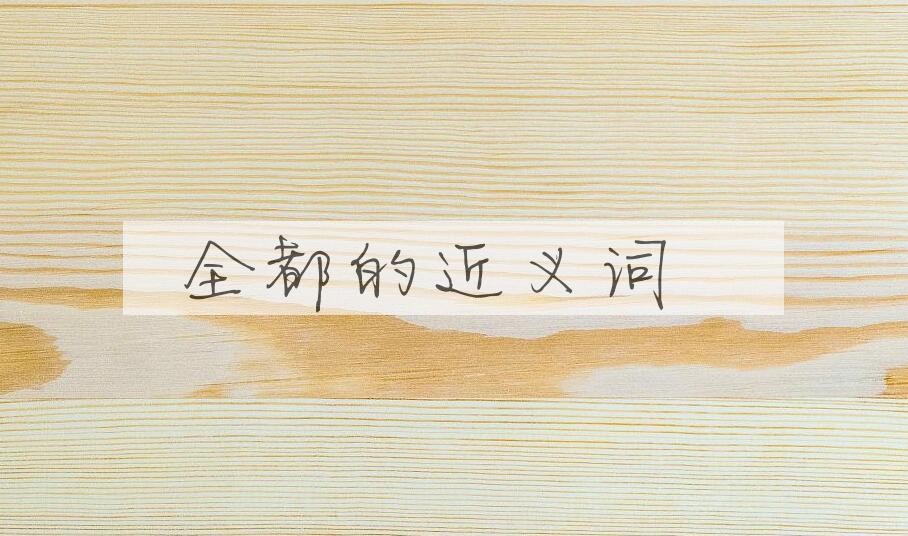 全都的近义词